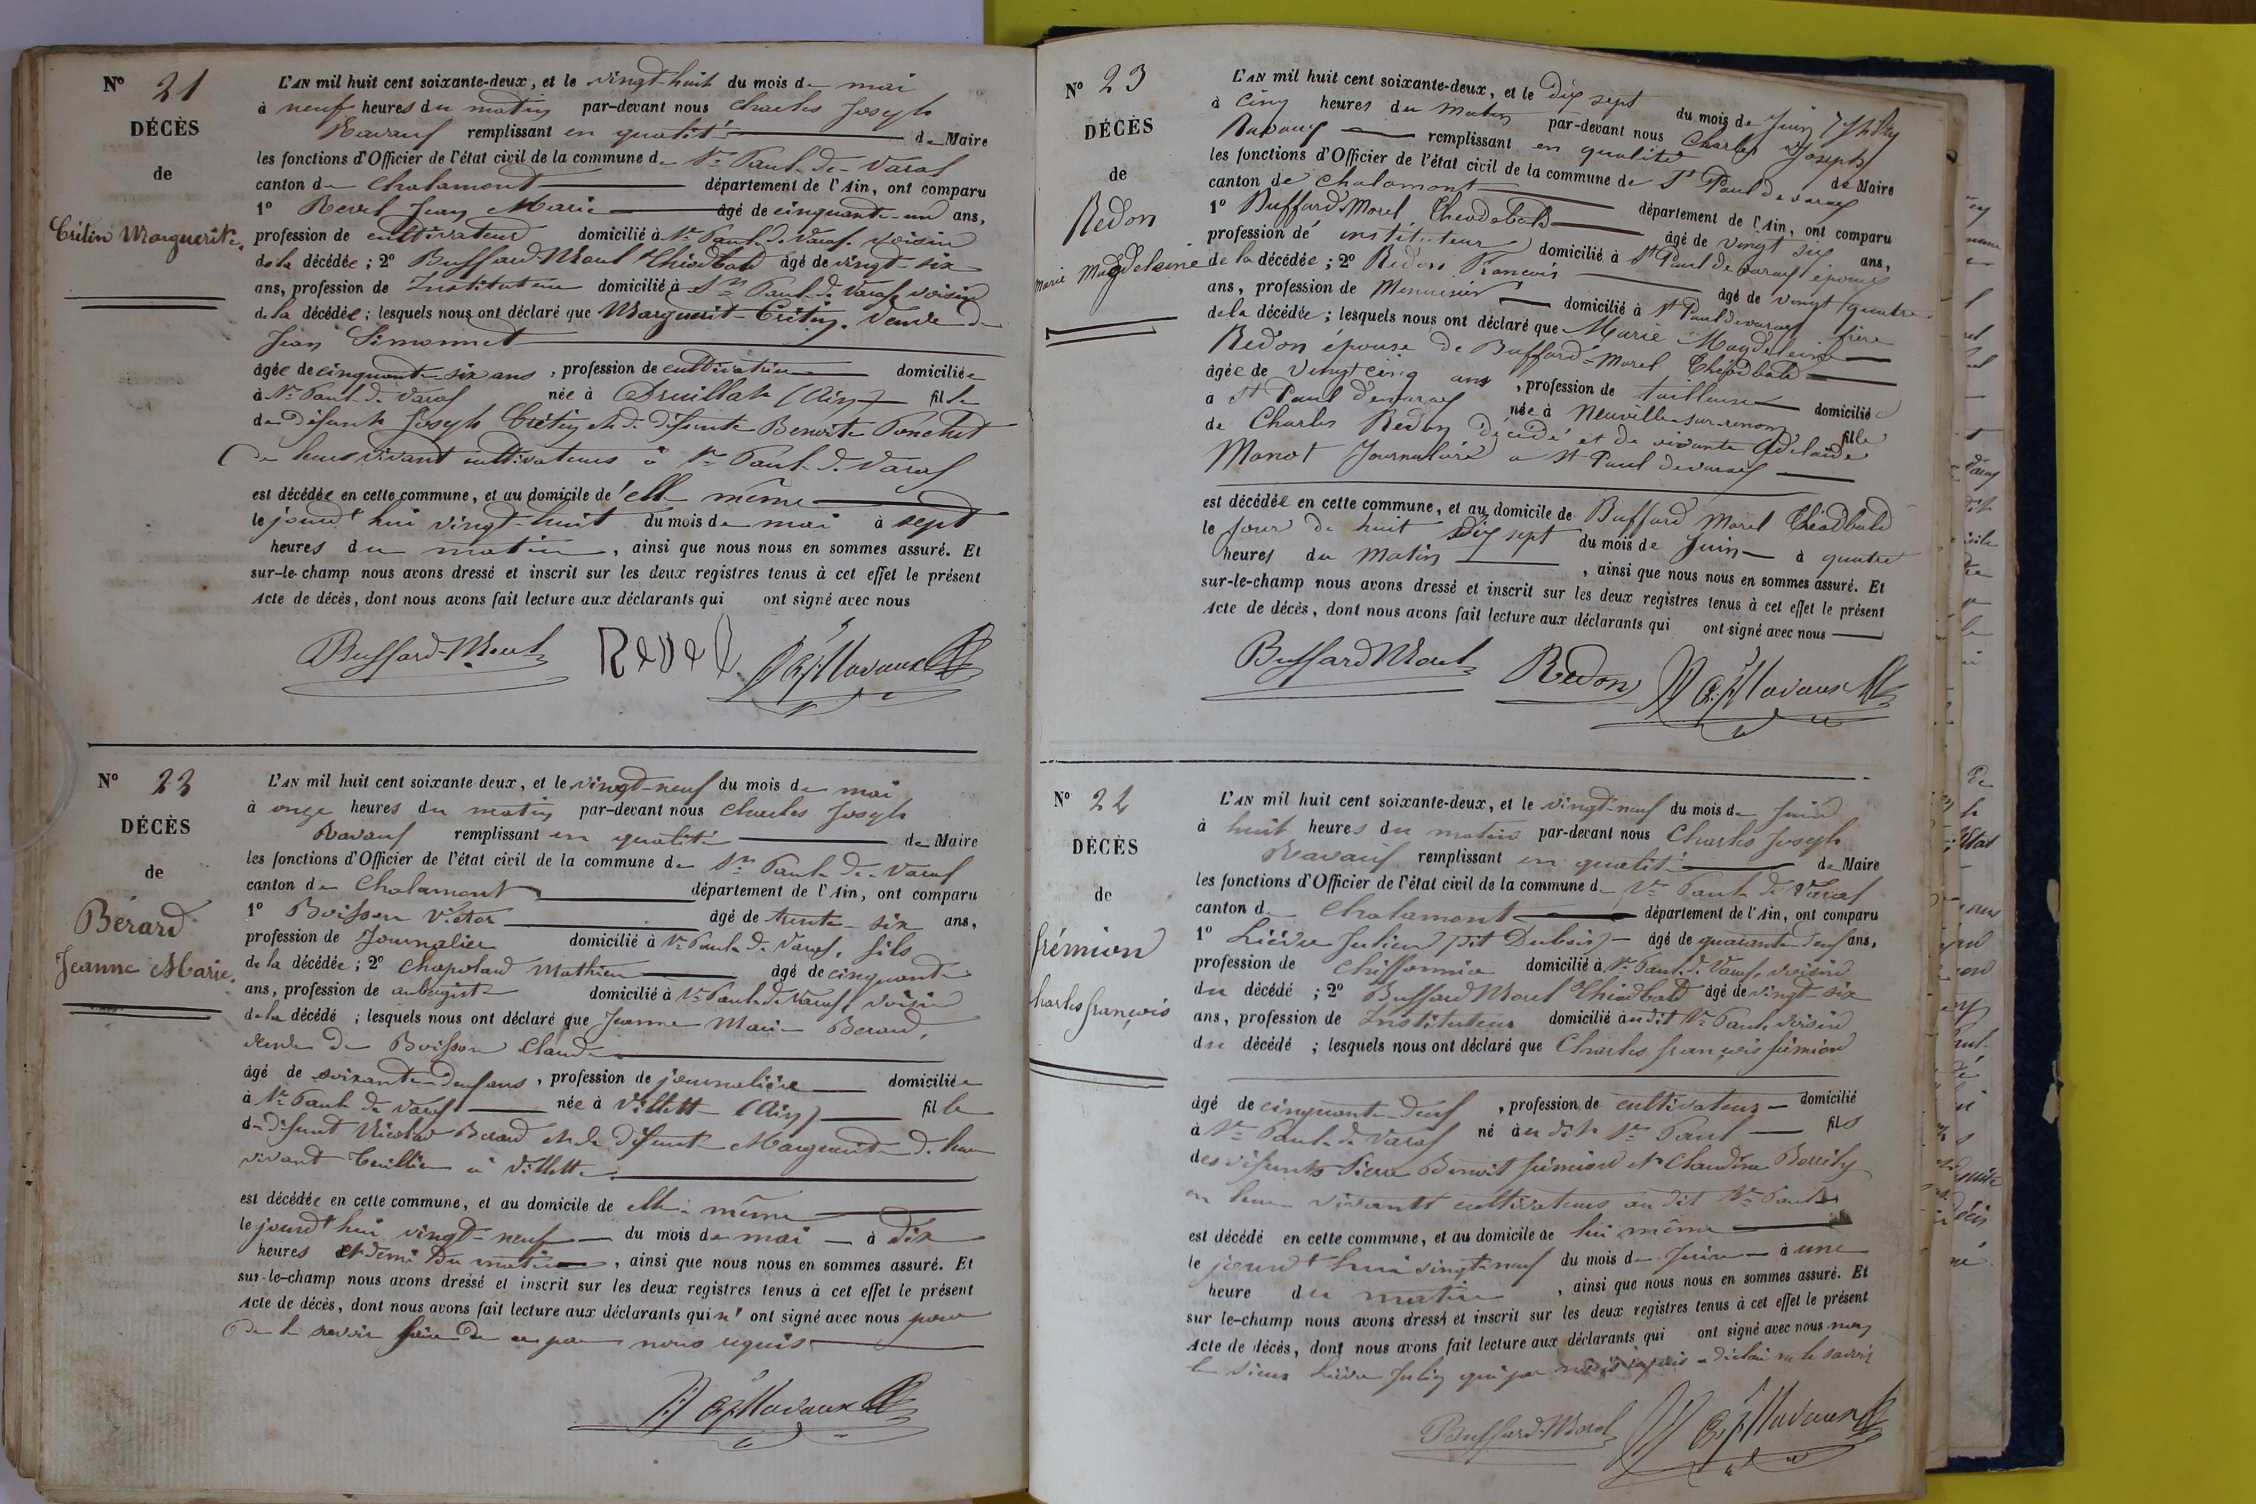 N° 21
DÉCÈS
de
Crétin Marguerite.
L'AN mil huit cent soixante-deux, et le vingt-huit du mois de mai
à neuf heures du matin par-devant nous Charles Joseph
Ravaux remplissant en qualité de Maire
les fonctions d'Officier de l'état civil de la commune de St Paul-de-Varax
canton de Chalamont département de l'Ain, ont comparu
1° Revel Jean Marie âgé de cinquante-un ans,
profession de cultivateur domicilié à St Paul-de-Varax voisin
de la décédée ; 2° Buffard Morel Théodbald âgé de vingt-six
ans, profession de Instituteur domicilié à St Paul-de-Varax voisin
de la décédée ; lesquels nous ont déclaré que Marguerite Crétin, veuve de
Jean Simonnet
âgée de cinquante-six ans, profession de cultivatrice domiciliée
à St Paul-de-Varax née à Druillat (Ain) fille
de défunt Joseph Crétin et de défunte Benoîte Ponchet
de leur vivant cultivateurs à St Paul-de-Varax
est décédée en cette commune, et au domicile de elle même
le jourd'hui vingt-huit du mois de mai à sept
heures du matin, ainsi que nous nous en sommes assuré. Et
sur-le-champ nous avons dressé et inscrit sur les deux registres tenus à cet effet le présent
Acte de décès, dont nous avons fait lecture aux déclarants qui ont signé avec nous
Buffard-Morel Revel Ravaux
N° 22
DÉCÈS
de
Bérard
Jeanne Marie.
L'AN mil huit cent soixante deux, et le vingt-neuf du mois de mai
à onze heures du matin par-devant nous Charles Joseph
Ravaux remplissant en qualité de Maire
les fonctions d'Officier de l'état civil de la commune de St Paul-de-Varax
canton de Chalamont département de l'Ain, ont comparu
1° Boisson Victor âgé de trente-six ans,
profession de Journalier domicilié à St Paul-de-Varax, fils
de la décédée ; 2° Chapolard Mathieu âgé de cinquante
ans, profession de aubergiste domicilié à St Paul-de-Varax, voisin
de la décédé ; lesquels nous ont déclaré que Jeanne Marie Berard,
veuve de Boisson Claude
âgé de soixante-deux ans, profession de journalière domiciliée
à St Paul de Varax née à Villette (Ain) fille
de défunt Nicolas Berard et de défunte Marguerite de leur
vivant à Villette
est décédée en cette commune, et au domicile de elle-même
le jourd'hui vingt-neuf du mois de mai à dix
heures et demi du matin, ainsi que nous nous en sommes assuré. Et
sur-le-champ nous avons dressé et inscrit sur les deux registres tenus à cet effet le présent
Acte de décès, dont nous avons fait lecture aux déclarants qui n'ont signé avec nous pour
ne le savoir faire de ce par nous requis
Ravaux
N° 23
DÉCÈS
de
Redon
marie Magdeleine
L'AN mil huit cent soixante-deux, et le dix sept du mois de Juin
à cinq heures du matin par-devant nous Charles Joseph
Ravaux remplissant en qualité de Maire
les fonctions d'Officier de l'état civil de la commune de St Paul de varax
canton de Chalamont département de l'Ain, ont comparu
1° Buffard-Morel Théodebald âgé de vingt six ans,
profession de instituteur domicilié à St Paul de varax époux
de la décédée ; 2° Redon François âgé de vingt quatre
ans, profession de Menuisier domicilié à St Paul de varax frère
de la décédée ; lesquels nous ont déclaré que Marie Magdeleine
Redon épouse de Buffard-Morel Théodbald
âgée de vingt cinq ans, profession de tailleuse domicilié
à St Paul de varax née à Neuville-sur-renon fille
de Charles Redon décédé et de vivante Adelaïde
Monot Journalière à St Paul de varax
est décédée en cette commune, et au domicile de Buffard Morel Théodbald
le jour de huit dix sept du mois de Juin à quatre
heures du matin, ainsi que nous nous en sommes assuré. Et
sur-le-champ nous avons dressé et inscrit sur les deux registres tenus à cet effet le présent
Acte de décès, dont nous avons fait lecture aux déclarants qui ont signé avec nous
Buffard Morel Redon Ravaux
N° 24
DÉCÈS
de
frémion
Charles françois
L'AN mil huit cent soixante-deux, et le vingt-neuf du mois de Juin
à huit heures du matin par-devant nous Charles Joseph
Ravaux remplissant en qualité de Maire
les fonctions d'Officier de l'état civil de la commune de St Paul de Varax
canton de Chalamont département de l'Ain, ont comparu
1° Lièvre Julien (dit Dubois) âgé de quarante-deux ans,
profession de chiffonnier domicilié à St Paul-de-Varax voisin
du décédé ; 2° Buffard Morel Théodbald âgé de vingt-six
ans, profession de Instituteur domicilié audit St Paul, voisin
du décédé ; lesquels nous ont déclaré que Charles françois frémion
âgé de cinquante-deux, profession de cultivateur domicilié
à St Paul-de-Varax né audit St Paul fils
des défunts Pierre Benoit frémion et Claudine
en leur vivants cultivateurs au dit St Paul
est décédé en cette commune, et au domicile de lui même
le jourd'hui vingt-neuf du mois de Juin à une
heure du matin, ainsi que nous nous en sommes assuré. Et
sur le-champ nous avons dressé et inscrit sur les deux registres tenus à cet effet le présent
Acte de décès, dont nous avons fait lecture aux déclarants qui ont signé avec nous non
le sieur Lièvre Julien qui par nous requis a déclaré ne le savoir
Buffard-Morel Ravaux